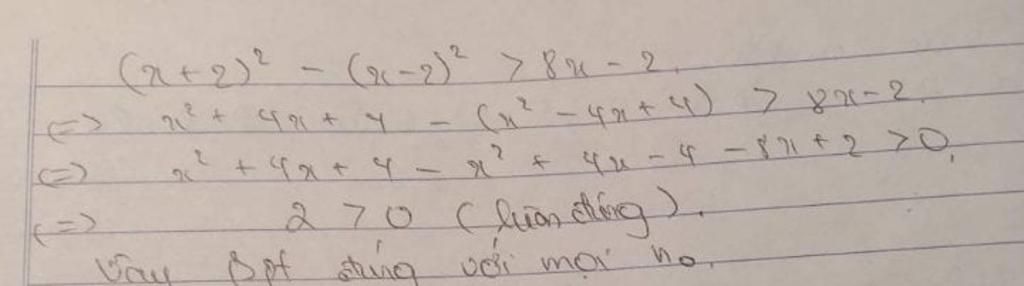 (x+2)² - (x-2)² > 8x - 2.
<=> x² + 4x + 4 - (x² - 4x + 4) > 8x - 2.
<=> x² + 4x + 4 - x² + 4x - 4 - 8x + 2 > 0.
<=> 2 > 0 (luôn đúng).
Vậy Bpt đúng với mọi no.